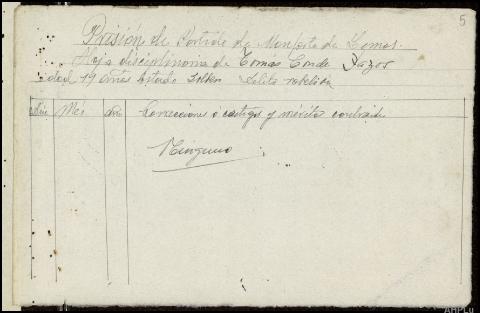 5
Prision de Partido de Monforte de Lemos.
Hoja disciplinaria de Tomas Conde
edad 19 años Estado Soltero Delito rebelión
Dia Mes año Correcciones ó castigos y mérito contraido
Ninguno
AHPLu